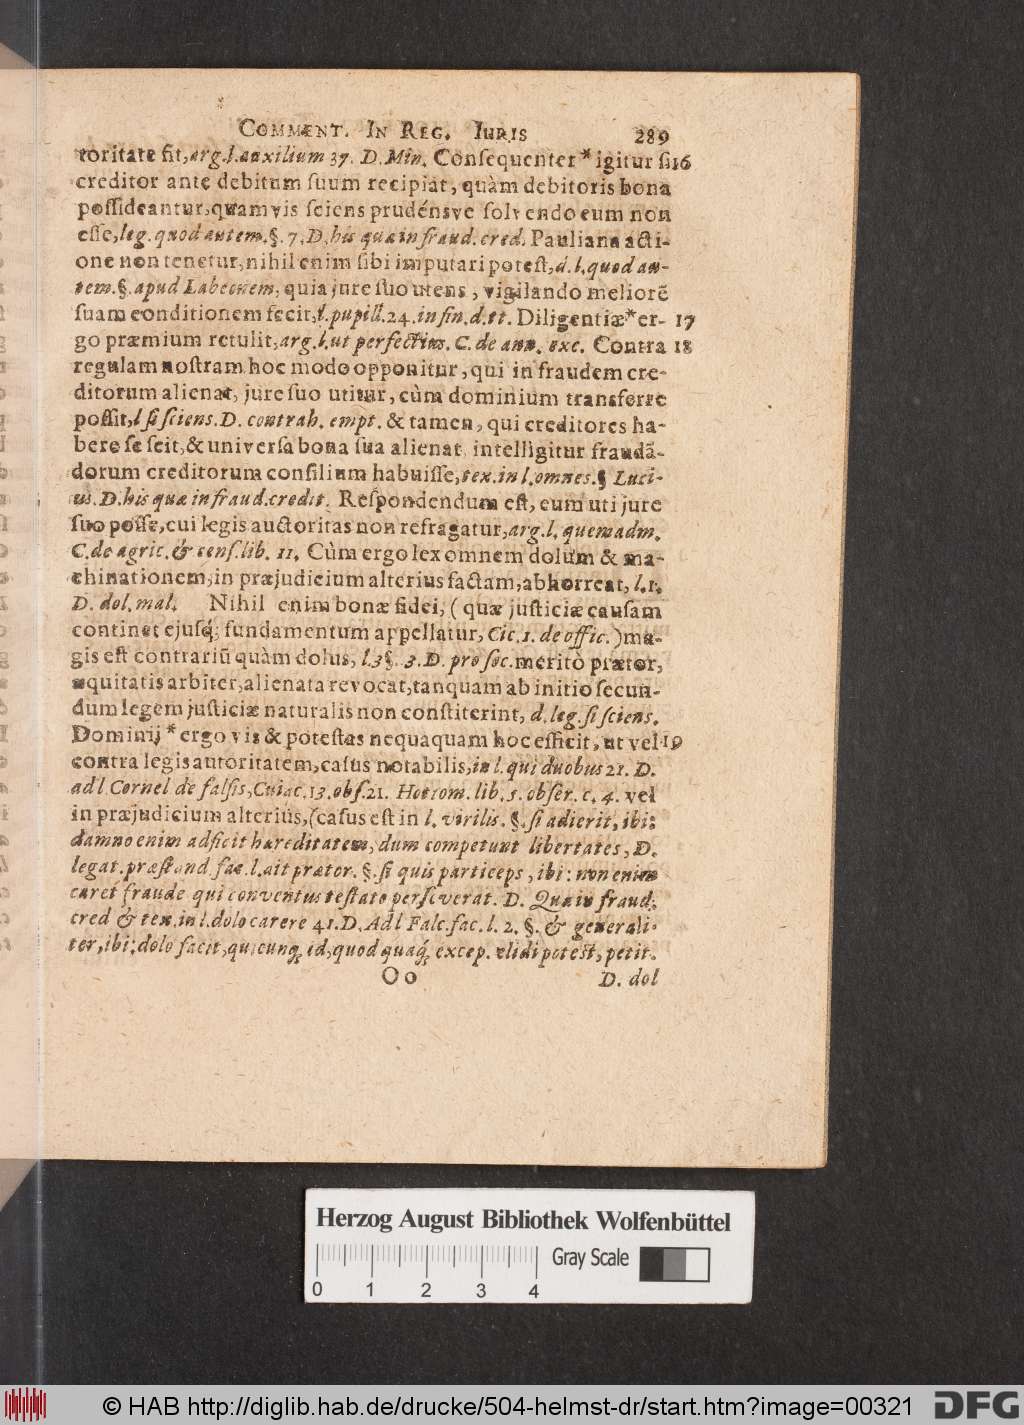 COMMENT. IN REG. IURIS 289
toritate fit, arg. l. auxilium 37. D. Min. Consequenter * igitur si 16
creditor ante debitum suum recipiat, quàm debitoris bona
possideantur, quamvis sciens prudénsve solvendo eum non
esse, leg. quod autem. §. 7. D. his quæ in fraud. cred. Pauliana acti-
one non tenetur, nihil enim sibi imputari potest, d. l. quod au-
tem. §. apud Labeonem, quia jure suo utens, vigilando meliorẽ
suam conditionem fecit, l. pupill. 24. in fin. d. tt. Diligentiæ * er- 17
go præmium retulit, arg. l. ut perfectius. C. de ann. exc. Contra 18
regulam nostram hoc modo opponitur, qui in fraudem cre-
ditorum alienat, jure suo utitur, cùm dominium transferre
possit, l si sciens. D. contrah. empt. & tamen, qui creditores ha-
bere se scit, & universa bona sua alienat, intelligitur fraudã-
dorum creditorum consilium habuisse, tex. in l. omnes. § Luci-
us. D. his quæ in fraud. credit. Respondendum est, eum uti jure
suo posse, cui legis auctoritas non refragatur, arg. l. quemadm.
C. de agric. & cens. lib. 11. Cùm ergo lex omnem dolum & ma-
chinationem, in præjudicium alterius factam, abhorreat, l. 1.
D. dol. mal. Nihil enim bonæ fidei, (quæ justiciæ causam
continet ejusq́; fundamentum appellatur, Cic. 1. de offic.) ma-
gis est contrariũ quàm dolus, l. 3 §. 3. D. pro soc. meritò prætor,
æquitatis arbiter, alienata revocat, tanquam ab initio secun-
dum legem justiciæ naturalis non constiterint, d. leg. si sciens.
Dominij * ergo vis & potestas nequaquam hoc efficit, ut vel 19
contra legis autoritatem, casus notabilis, in l. qui duobus 21. D.
ad l Cornel de falsis, Cuiac. 13. obs. 21. Hottom. lib. 5. obser. c. 4. vel
in præjudicium alterius, (casus est in l. virilis. §. si adierit, ibi:
damno enim adficit hæreditatem, dum competunt libertates, D.
legat. præstand. fac. l. ait prætor. §. si quis particeps, ibi: non enim
caret fraude qui conventus testato perseverat. D. Quæ in fraud.
cred & tex. in l. dolo carere 41. D. Ad l Falc. fac. l. 2. §. & generali-
ter, ibi: dolo facit, quicunq́; id, quod quaq́; excep. elidi potest, petit.
Oo D. dol
Herzog August Bibliothek Wolfenbüttel
Gray Scale
0 1 2 3 4
© HAB http://diglib.hab.de/drucke/504-helmst-dr/start.htm?image=00321 DFG